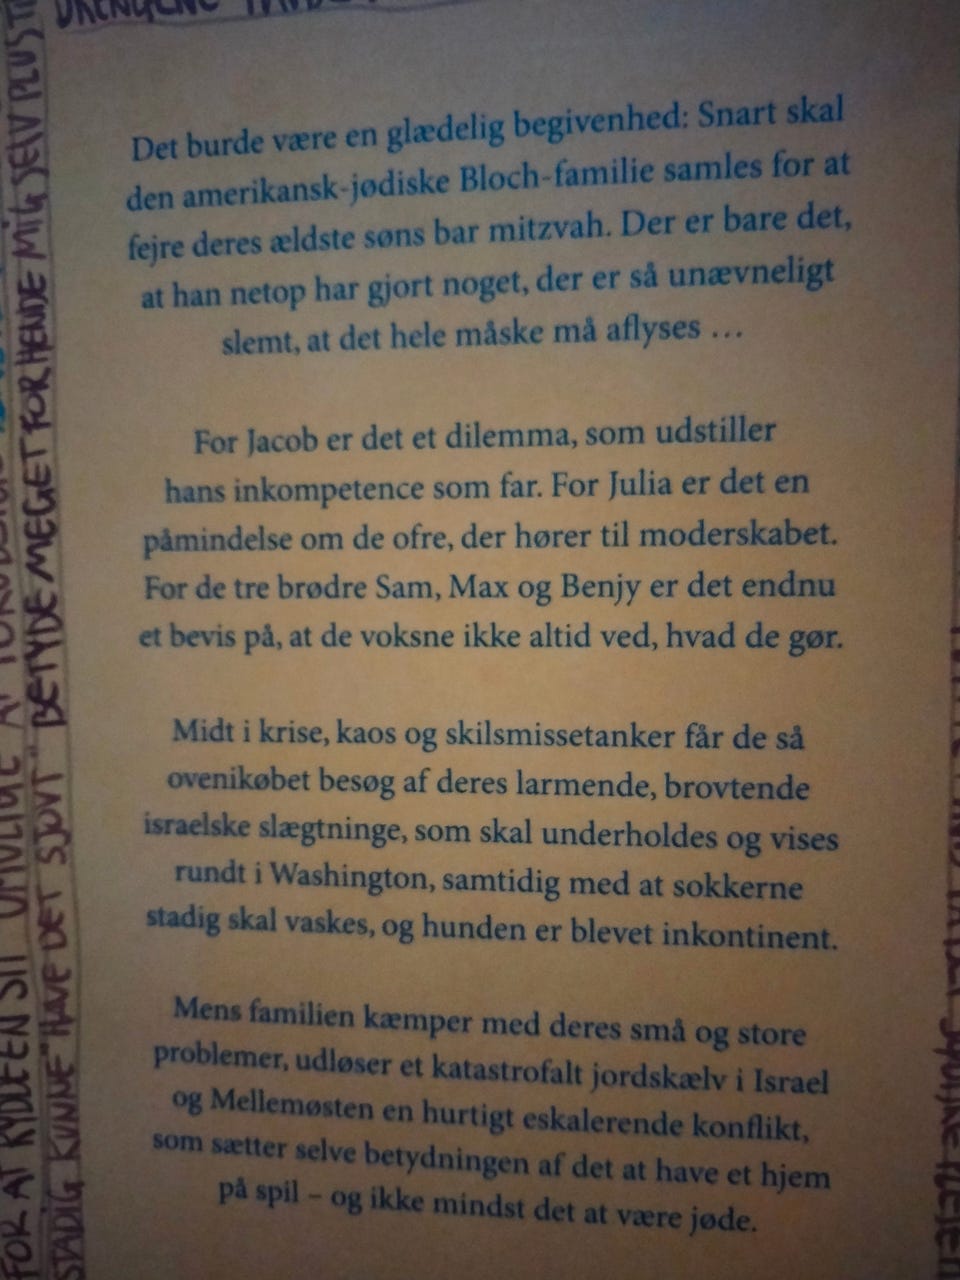 Det burde være en glædelig begivenhed: Snart skal
den amerikansk-jødiske Bloch-familie samles for at
fejre deres ældste søns bar mitzvah. Der er bare det,
at han netop har gjort noget, der er så unævneligt
slemt, at det hele måske må aflyses ...
For Jacob er det et dilemma, som udstiller
hans inkompetence som far. For Julia er det en
påmindelse om de ofre, der hører til moderskabet.
For de tre brødre Sam, Max og Benjy er det endnu
et bevis på, at de voksne ikke altid ved, hvad de gør.
Midt i krise, kaos og skilsmissetanker får de så
ovenikøbet besøg af deres larmende, brovtende
israelske slægtninge, som skal underholdes og vises
rundt i Washington, samtidig med at sokkerne
stadig skal vaskes, og hunden er blevet inkontinent.
Mens familien kæmper med deres små og store
problemer, udløser et katastrofalt jordskælv i Israel
og Mellemøsten en hurtigt eskalerende konflikt,
som sætter selve betydningen af det at have et hjem
på spil – og ikke mindst det at være jøde.
FOR AT RYDDE EN STI UMULIGE AF
STADIG KUNNE "HAVE DET SJOVT" BETYDE MEGET FOR HENDE MIG SELV PLUS